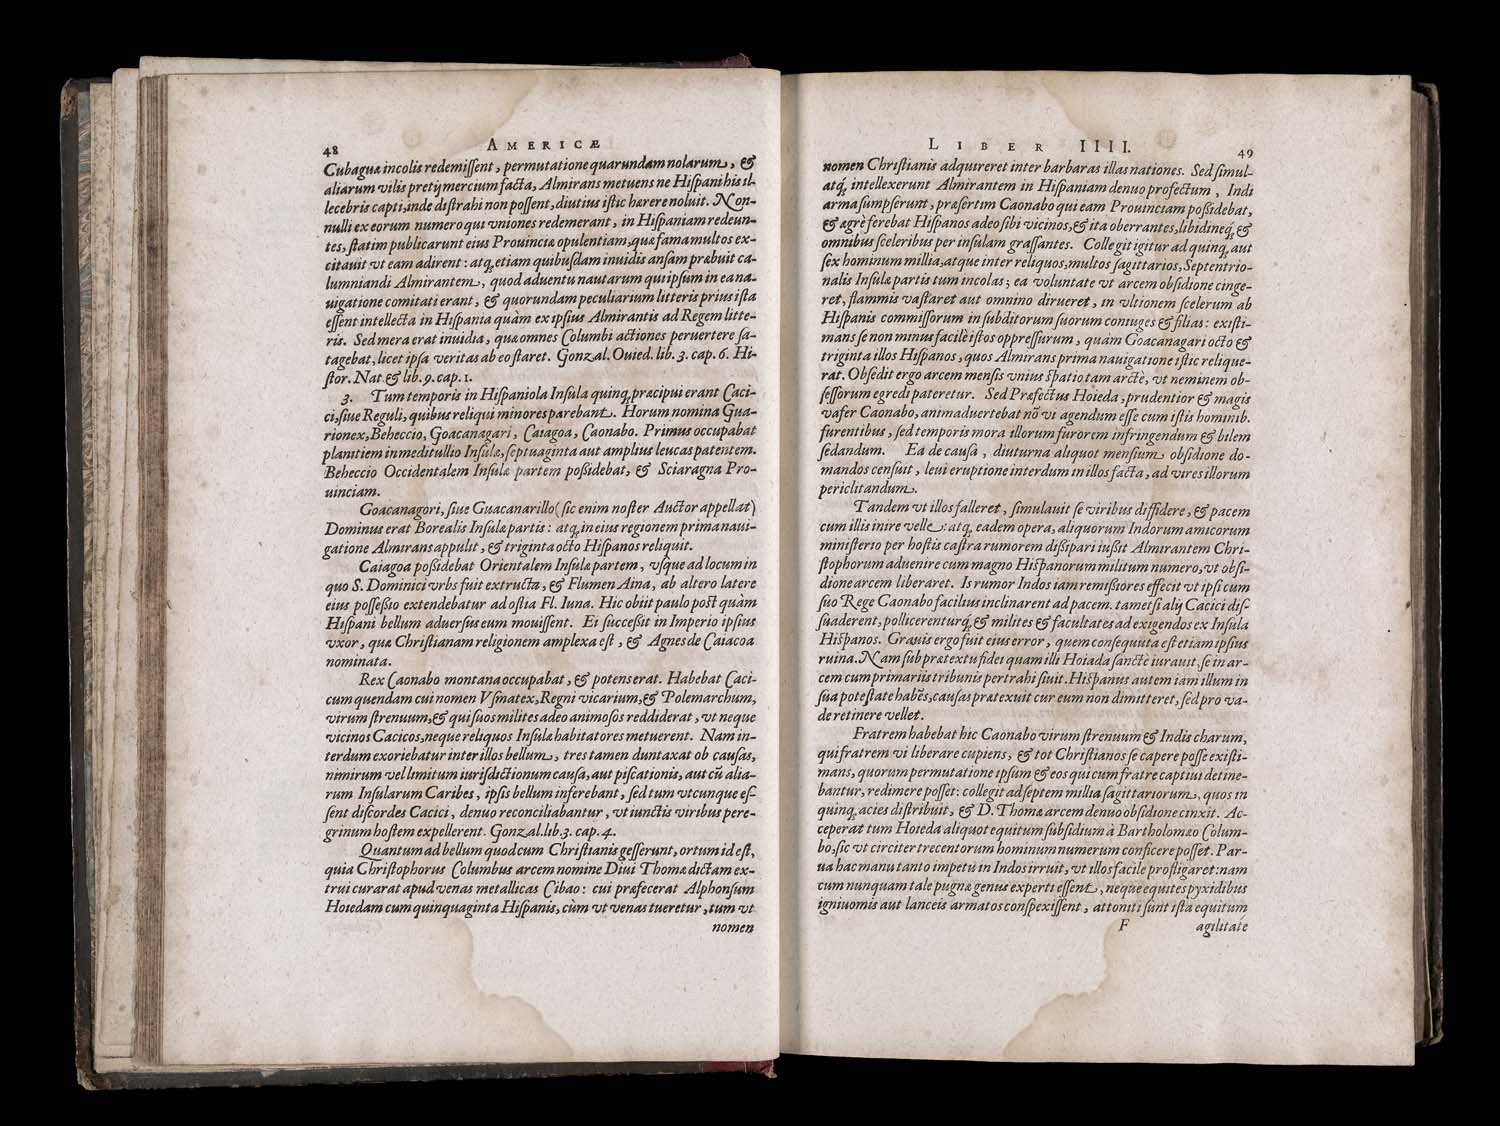 48
AMERICÆ
Cubaguæ incolis redemiſſent, permutatione quarundam nolarum, &
aliarum vilis pretij mercium facta, Almirans metuens ne Hiſpani his il-
lecebris capti, inde diſtrahi non poſſent, diutius iſtic hærere noluit. Non-
nulli ex eorum numero qui vniones redemerant, in Hiſpaniam redeun-
tes, ſtatim publicarunt eius Prouinciæ opulentiam, quæ fama multos ex-
citauit vt eam adirent: atq; etiam quibuſdam inuidis anſam præbuit ca-
lumniandi Almirantem, quod aduentu nautarum qui ipſum in ea na-
uigatione comitati erant, & quorundam peculiarium litteris prius iſta
eſſent intellecta in Hiſpania quàm ex ipſius Almirantis ad Regem litte-
ris. Sed mera erat inuidia, quæ omnes Columbi actiones peruertere ſa-
tagebat, licet ipſa veritas ab eo ſtaret. Gonzal. Ouied. lib. 3. cap. 6. Hi-
ſtor. Nat. & lib. 9. cap. 1.
3. Tum temporis in Hiſpaniola Inſula quinq; præcipui erant Caci-
ci, ſiue Reguli, quibus reliqui minores parebant. Horum nomina Gua-
rionex, Beheccio, Goacanagari, Caiagoa, Caonabo. Primus occupabat
planitiem in meditullio Inſulæ, ſeptuaginta aut amplius leucas patentem.
Beheccio Occidentalem Inſulæ partem poßidebat, & Sciaragna Pro-
uinciam.
Goacanagori, ſiue Guacanarillo (ſic enim noſter Auctor appellat)
Dominus erat Borealis Inſulæ partis: atq; in eius regionem prima naui-
gatione Almirans appulit, & triginta octo Hiſpanos reliquit.
Caiagoa poßidebat Orientalem Inſulæ partem, vſque ad locum in
quo S. Dominici vrbs fuit extructa, & Flumen Aina, ab altero latere
eius poſſeßio extendebatur ad oſtia Fl. Iuna. Hic obiit paulo poſt quàm
Hiſpani bellum aduerſus eum mouiſſent. Ei ſucceßit in Imperio ipſius
vxor, quæ Chriſtianam religionem amplexa eſt, & Agnes de Caiacoa
nominata.
Rex Caonabo montana occupabat, & potens erat. Habebat Caci-
cum quendam cui nomen Vſmatex, Regni vicarium, & Polemarchum,
virum ſtrenuum, & qui ſuos milites adeo animoſos reddiderat, vt neque
vicinos Cacicos, neque reliquos Inſulæ habitatores metuerent. Nam in-
terdum exoriebatur inter illos bellum, tres tamen duntaxat ob cauſas,
nimirum vel limitum iuriſdictionum cauſa, aut piſcationis, aut cũ alia-
rum Inſularum Caribes, ipſis bellum inferebant, ſed tum vtcunque eſ-
ſent diſcordes Cacici, denuo reconciliabantur, vt iunctis viribus pere-
grinum hoſtem expellerent. Gonzal. lib. 3. cap. 4.
Quantum ad bellum quod cum Chriſtianis geſſerunt, ortum id eſt,
quia Chriſtophorus Columbus arcem nomine Diui Thomæ dictam ex-
trui curarat apud venas metallicas Cibao: cui præfecerat Alphonſum
Hoiedam cum quinquaginta Hiſpanis, cùm vt venas tueretur, tum vt
nomen
LIBER IIII.
49
nomen Chriſtianis adquireret inter barbaras illas nationes. Sed ſimul-
atq; intellexerunt Almirantem in Hiſpaniam denuo profectum, Indi
arma ſumpſerunt, præſertim Caonabo qui eam Prouinciam poßidebat,
& ægrè ferebat Hiſpanos adeo ſibi vicinos, & ita oberrantes, libidineq; &
omnibus ſceleribus per inſulam graſſantes. Collegit igitur ad quinq; aut
ſex hominum millia, atque inter reliquos, multos ſagittarios, Septentrio-
nalis Inſulæ partis tum incolas; ea voluntate vt arcem obſidione cinge-
ret, flammis vaſtaret aut omnino dirueret, in vltionem ſcelerum ab
Hiſpanis commiſſorum in ſubditorum ſuorum coniuges & filias: exiſti-
mans ſe non minus facilè iſtos oppreſſurum, quàm Goacanagari octo &
triginta illos Hiſpanos, quos Almirans prima nauigatione iſtic relique-
rat. Obſedit ergo arcem menſis vnius ſpatio tam arctè, vt neminem ob-
ſeſſorum egredi pateretur. Sed Præfectus Hoieda, prudentior & magis
vafer Caonabo, animaduertebat nõ vi agendum eſſe cum iſtis hominib.
furentibus, ſed temporis mora illorum furorem infringendum & bilem
ſedandum. Ea de cauſa, diuturna aliquot menſium obſidione do-
mandos cenſuit, leui eruptione interdum in illos facta, ad vires illorum
periclitandum.
Tandem vt illos falleret, ſimulauit ſe viribus diffidere, & pacem
cum illis inire velle: atq; eadem opera, aliquorum Indorum amicorum
miniſterio per hoſtis caſtra rumorem dißipari iußit Almirantem Chri-
ſtophorum aduenire cum magno Hiſpanorum militum numero, vt obſi-
dione arcem liberaret. Is rumor Indos iam remißiores effecit vt ipſi cum
ſuo Rege Caonabo facilius inclinarent ad pacem. tametſi alij Cacici diſ-
ſuaderent, pollicerenturq; & milites & facultates ad exigendos ex Inſula
Hiſpanos. Grauis ergo fuit eius error, quem conſequuta eſt etiam ipſius
ruina. Nam ſub prætextu fidei quam illi Hoiada ſanctè iurauit, ſe in ar-
cem cum primariis tribunis pertrahi ſiuit. Hiſpanus autem iam illum in
ſua poteſtate habẽs, cauſas prætexuit cur eum non dimitteret, ſed pro va-
de retinere vellet.
Fratrem habebat hic Caonabo virum ſtrenuum & Indis charum,
qui fratrem vi liberare cupiens, & tot Chriſtianos ſe capere poſſe exiſti-
mans, quorum permutatione ipſum & eos qui cum fratre captiui detine-
bantur, redimere poſſet: collegit ad ſeptem millia ſagittariorum, quos in
quinq; acies diſtribuit, & D. Thomæ arcem denuo obſidione cinxit. Ac-
ceperat tum Hoieda aliquot equitum ſubſidium à Bartholomæo Colum-
bo, ſic vt circiter trecentorum hominum numerum conficere poſſet. Par-
ua hac manu tanto impetu in Indos irruit, vt illos facile profligaret: nam
cum nunquam tale pugnæ genus experti eſſent, neque equites pyxidibus
igniuomis aut lanceis armatos conſpexiſſent, attoniti ſunt iſta equitum
F
agilitate